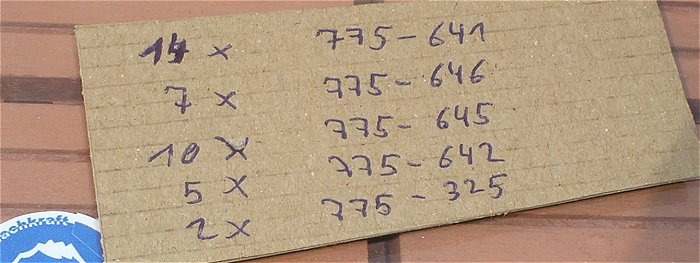 14 x 775-641
7 x 775-646
10 x 775-645
5 x 775-642
2 x 775-325
achkraft